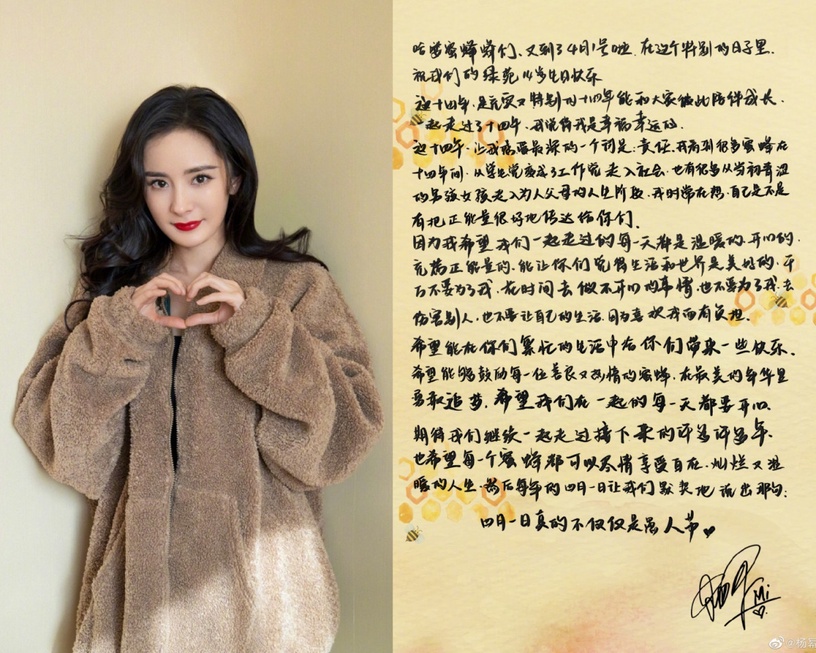 哈啰蜜蜂蜂们、又到了4月1号啦、在这个特别的日子里、
祝我们的绿苑14岁生日快乐
这十四年,是充实又特别的十四年能和大家彼此陪伴成长、
一起走过了十四年、我觉得我是幸福幸运的、
这十四年、让我感受最深的一个词是:责任、我看到很多蜜蜂在
十四年间、从学生党变成了工作党走入社会、也有很多从当初青涩
的男孩女孩走入为人父母的人生阶段、我时常在想、自己是不是
有把正能量很好地传达给你们、
因为我希望我们一起走过的每一天都是温暖的、开心的、
充满正能量的、能让你们觉得生活和世界是美好的、千
万不要为了我、花时间去做不开心的事情、也不要为了我、去
伤害别人、也不要让自己的生活、因为喜欢我而有负担、
希望能在你们繁忙的生活中给你们带来一些快乐、
希望能够鼓励每一位善良又热情的蜜蜂、在最美的年华里
勇敢追梦、希望我们在一起的每一天都要开心、
期待我们继续一起走过接下来的许多许多年、
也希望每一个蜜蜂都可以尽情享受自在、灿烂又温
暖的人生、然后每年的四月一日让我们默契地说出那句:
四月一日真的不仅仅是愚人节
Mi